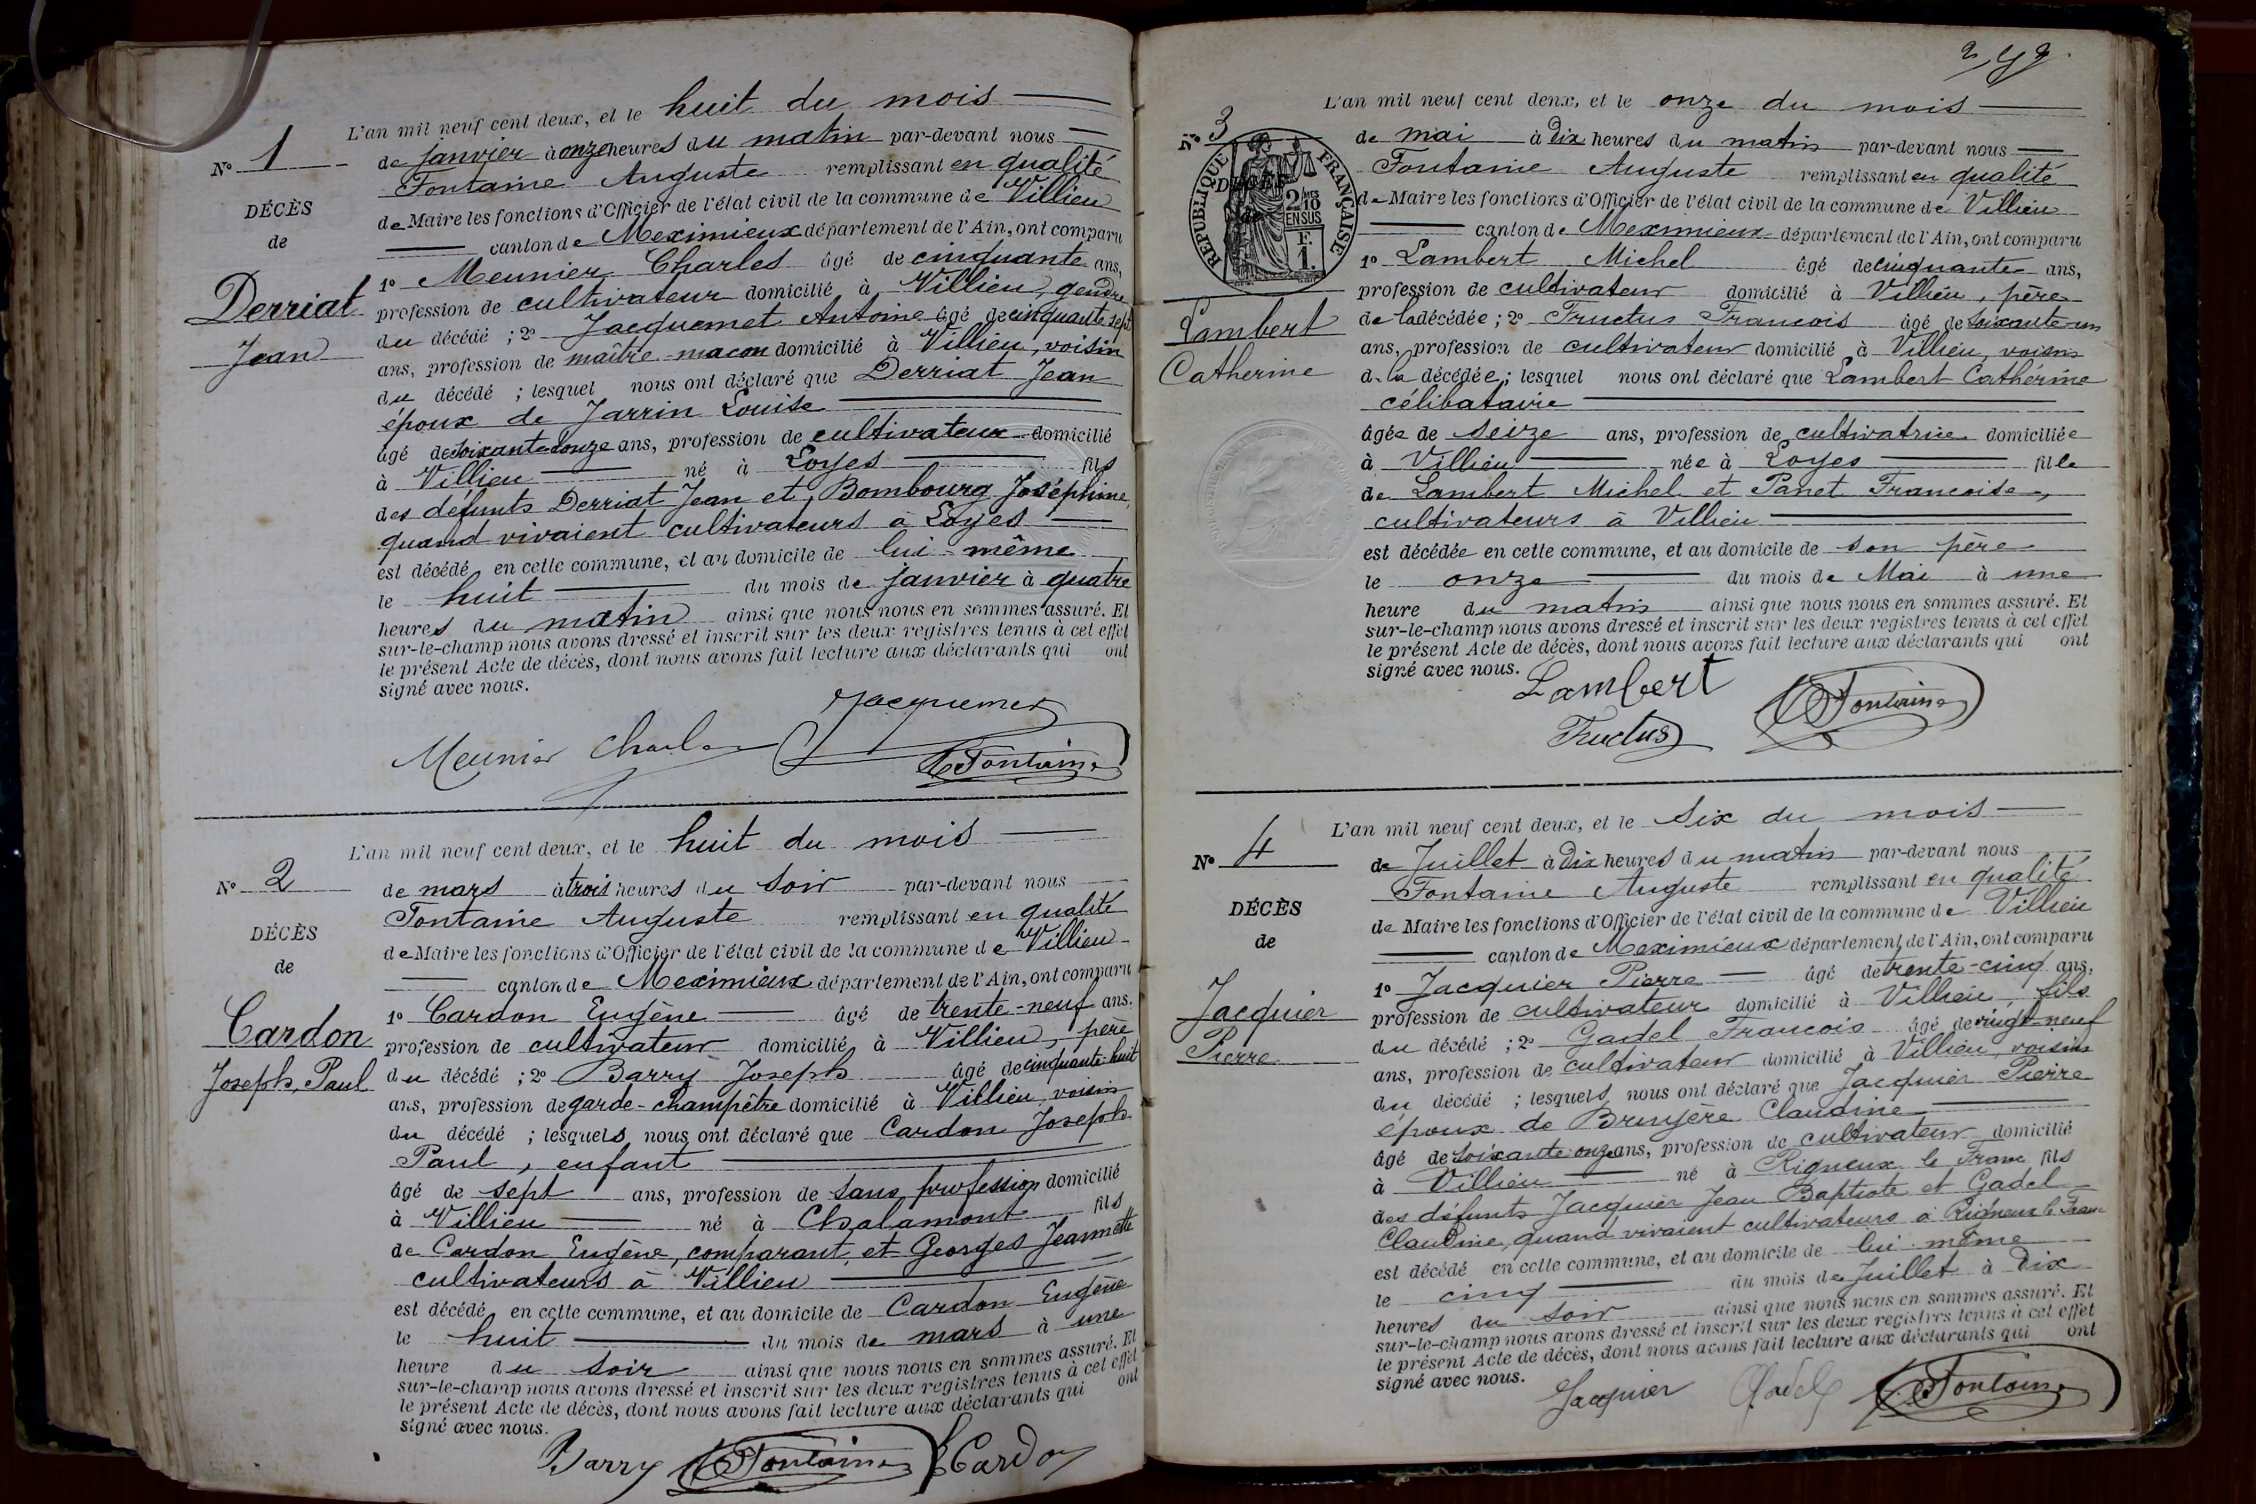 N° 1
DÉCÈS
de
Derriat
Jean
L'an mil neuf cent deux, et le huit du mois
de janvier à onze heures du matin par-devant nous
Fontaine Auguste remplissant en qualité
de Maire les fonctions d'Officier de l'état civil de la commune de Villieu
canton de Meximieux département de l'Ain, ont comparu
1° Meunier Charles âgé de cinquante ans,
profession de cultivateur domicilié à Villieu, gendre
du décédé ; 2° Jacquemet Antoine âgé de cinquante sept
ans, profession de maître-macon domicilié à Villieu, voisin
du décédé ; lesquel nous ont déclaré que Derriat Jean
époux de Jarrin Louise
âgé de soixante onze ans, profession de cultivateur domicilié
à Villieu né à Loyes fils
des défunts Derriat Jean et Bombourg Joséphine,
quand vivaient cultivateurs à Loyes
est décédé en cette commune, et au domicile de lui-même
le huit du mois de janvier à quatre
heures du matin ainsi que nous nous en sommes assuré. Et
sur-le-champ nous avons dressé et inscrit sur les deux registres tenus à cet effet
le présent Acte de décès, dont nous avons fait lecture aux déclarants qui ont
signé avec nous.
Jacquemet
Meunier Charles
Fontaine
N° 2
DÉCÈS
de
Cardon
Joseph, Paul
L'an mil neuf cent deux, et le huit du mois
de mars à trois heures du soir par-devant nous
Fontaine Auguste remplissant en qualité
de Maire les fonctions d'Officier de l'état civil de la commune de Villieu
canton de Meximieux département de l'Ain, ont comparu
1° Cardon Eugène âgé de trente-neuf ans,
profession de cultivateur domicilié à Villieu, père
du décédé ; 2° Barry Joseph âgé de cinquante-huit
ans, profession de garde-champêtre domicilié à Villieu, voisin
du décédé ; lesquels nous ont déclaré que Cardon Joseph
Paul, enfant
âgé de sept ans, profession de sans profession domicilié
à Villieu né à Chalamont fils
de Cardon Eugène, comparant, et Georges Jeannette
cultivateurs à Villieu
est décédé en cette commune, et au domicile de Cardon Eugène
le huit du mois de mars à une
heure du soir ainsi que nous nous en sommes assuré. Et
sur-le-champ nous avons dressé et inscrit sur les deux registres tenus à cet effet
le présent Acte de décès, dont nous avons fait lecture aux déclarants qui ont
signé avec nous.
Barry Fontaine Cardon
N° 3
RÉPUBLIQUE FRANÇAISE
DÉCÈS
2/10
EN SUS
F.
1.
Lambert
Catherine
L'an mil neuf cent deux, et le onze du mois
de mai à dix heures du matin par-devant nous
Fontaine Auguste remplissant en qualité
de Maire les fonctions d'Officier de l'état civil de la commune de Villieu
canton de Meximieux département de l'Ain, ont comparu
1° Lambert Michel âgé de cinquante ans,
profession de cultivateur domicilié à Villieu, père
de la décédée ; 2° Fructus Francois âgé de soixante-un
ans, profession de cultivateur domicilié à Villieu, voisin
de la décédée ; lesquel nous ont déclaré que Lambert Cathérine
célibataire
âgée de seize ans, profession de cultivatrice domiciliée
à Villieu née à Loyes fille
de Lambert Michel et Panet Francoise,
cultivateurs à Villieu
est décédée en cette commune, et au domicile de son père
le onze du mois de Mai à une
heure du matin ainsi que nous nous en sommes assuré. Et
sur-le-champ nous avons dressé et inscrit sur les deux registres tenus à cet effet
le présent Acte de décès, dont nous avons fait lecture aux déclarants qui ont
signé avec nous.
Lambert
Fructus Fontaine
N° 4
DÉCÈS
de
Jacquier
Pierre
L'an mil neuf cent deux, et le six du mois
de Juillet à dix heures du matin par-devant nous
Fontaine Auguste remplissant en qualité
de Maire les fonctions d'Officier de l'état civil de la commune de Villieu
canton de Meximieux département de l'Ain, ont comparu
1° Jacquier Pierre âgé de trente-cinq ans,
profession de cultivateur domicilié à Villieu, fils
du décédé ; 2° Gadel Francois âgé de vingt-neuf
ans, profession de cultivateur domicilié à Villieu, voisin
du décédé ; lesquels nous ont déclaré que Jacquier Pierre
époux de Bruyère Claudine
âgé de soixante onze ans, profession de cultivateur domicilié
à Villieu né à Rigneux le Franc fils
des défunts Jacquier Jean Baptiste et Gadel
Claudine, quand vivaient cultivateurs à Rigneux le Franc
est décédé en cette commune, et au domicile de lui-même
le cinq du mois de Juillet à dix
heures du soir ainsi que nous nous en sommes assuré. Et
sur-le-champ nous avons dressé et inscrit sur les deux registres tenus à cet effet
le présent Acte de décès, dont nous avons fait lecture aux déclarants qui ont
signé avec nous.
Jacquier Gadel Fontaine